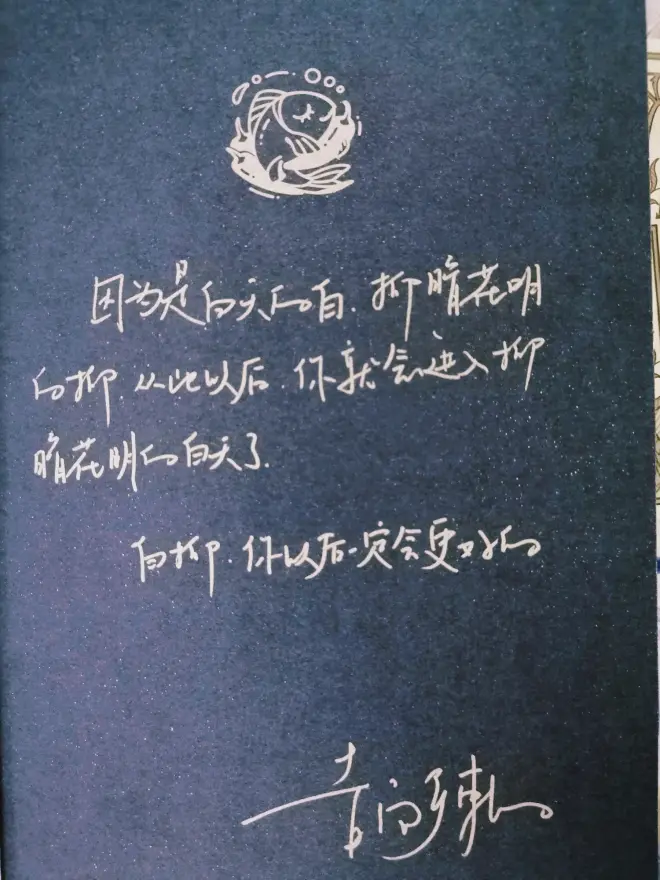 因为是白天的白，柳暗花明
的柳，从此以后，你就会进入柳
暗花明的白天了。
白柳，你以后一定会更好的